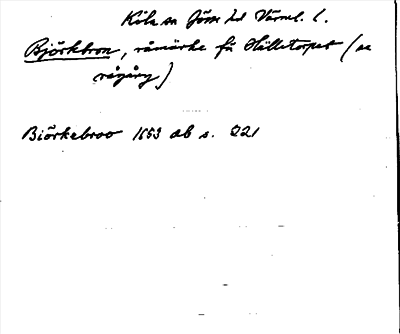 Kila sn Jösse hd Värml. l.
Björkbron, råmärke för Hälletorpet (se
rågång)
Biörkebroo 1653 ab s. 221